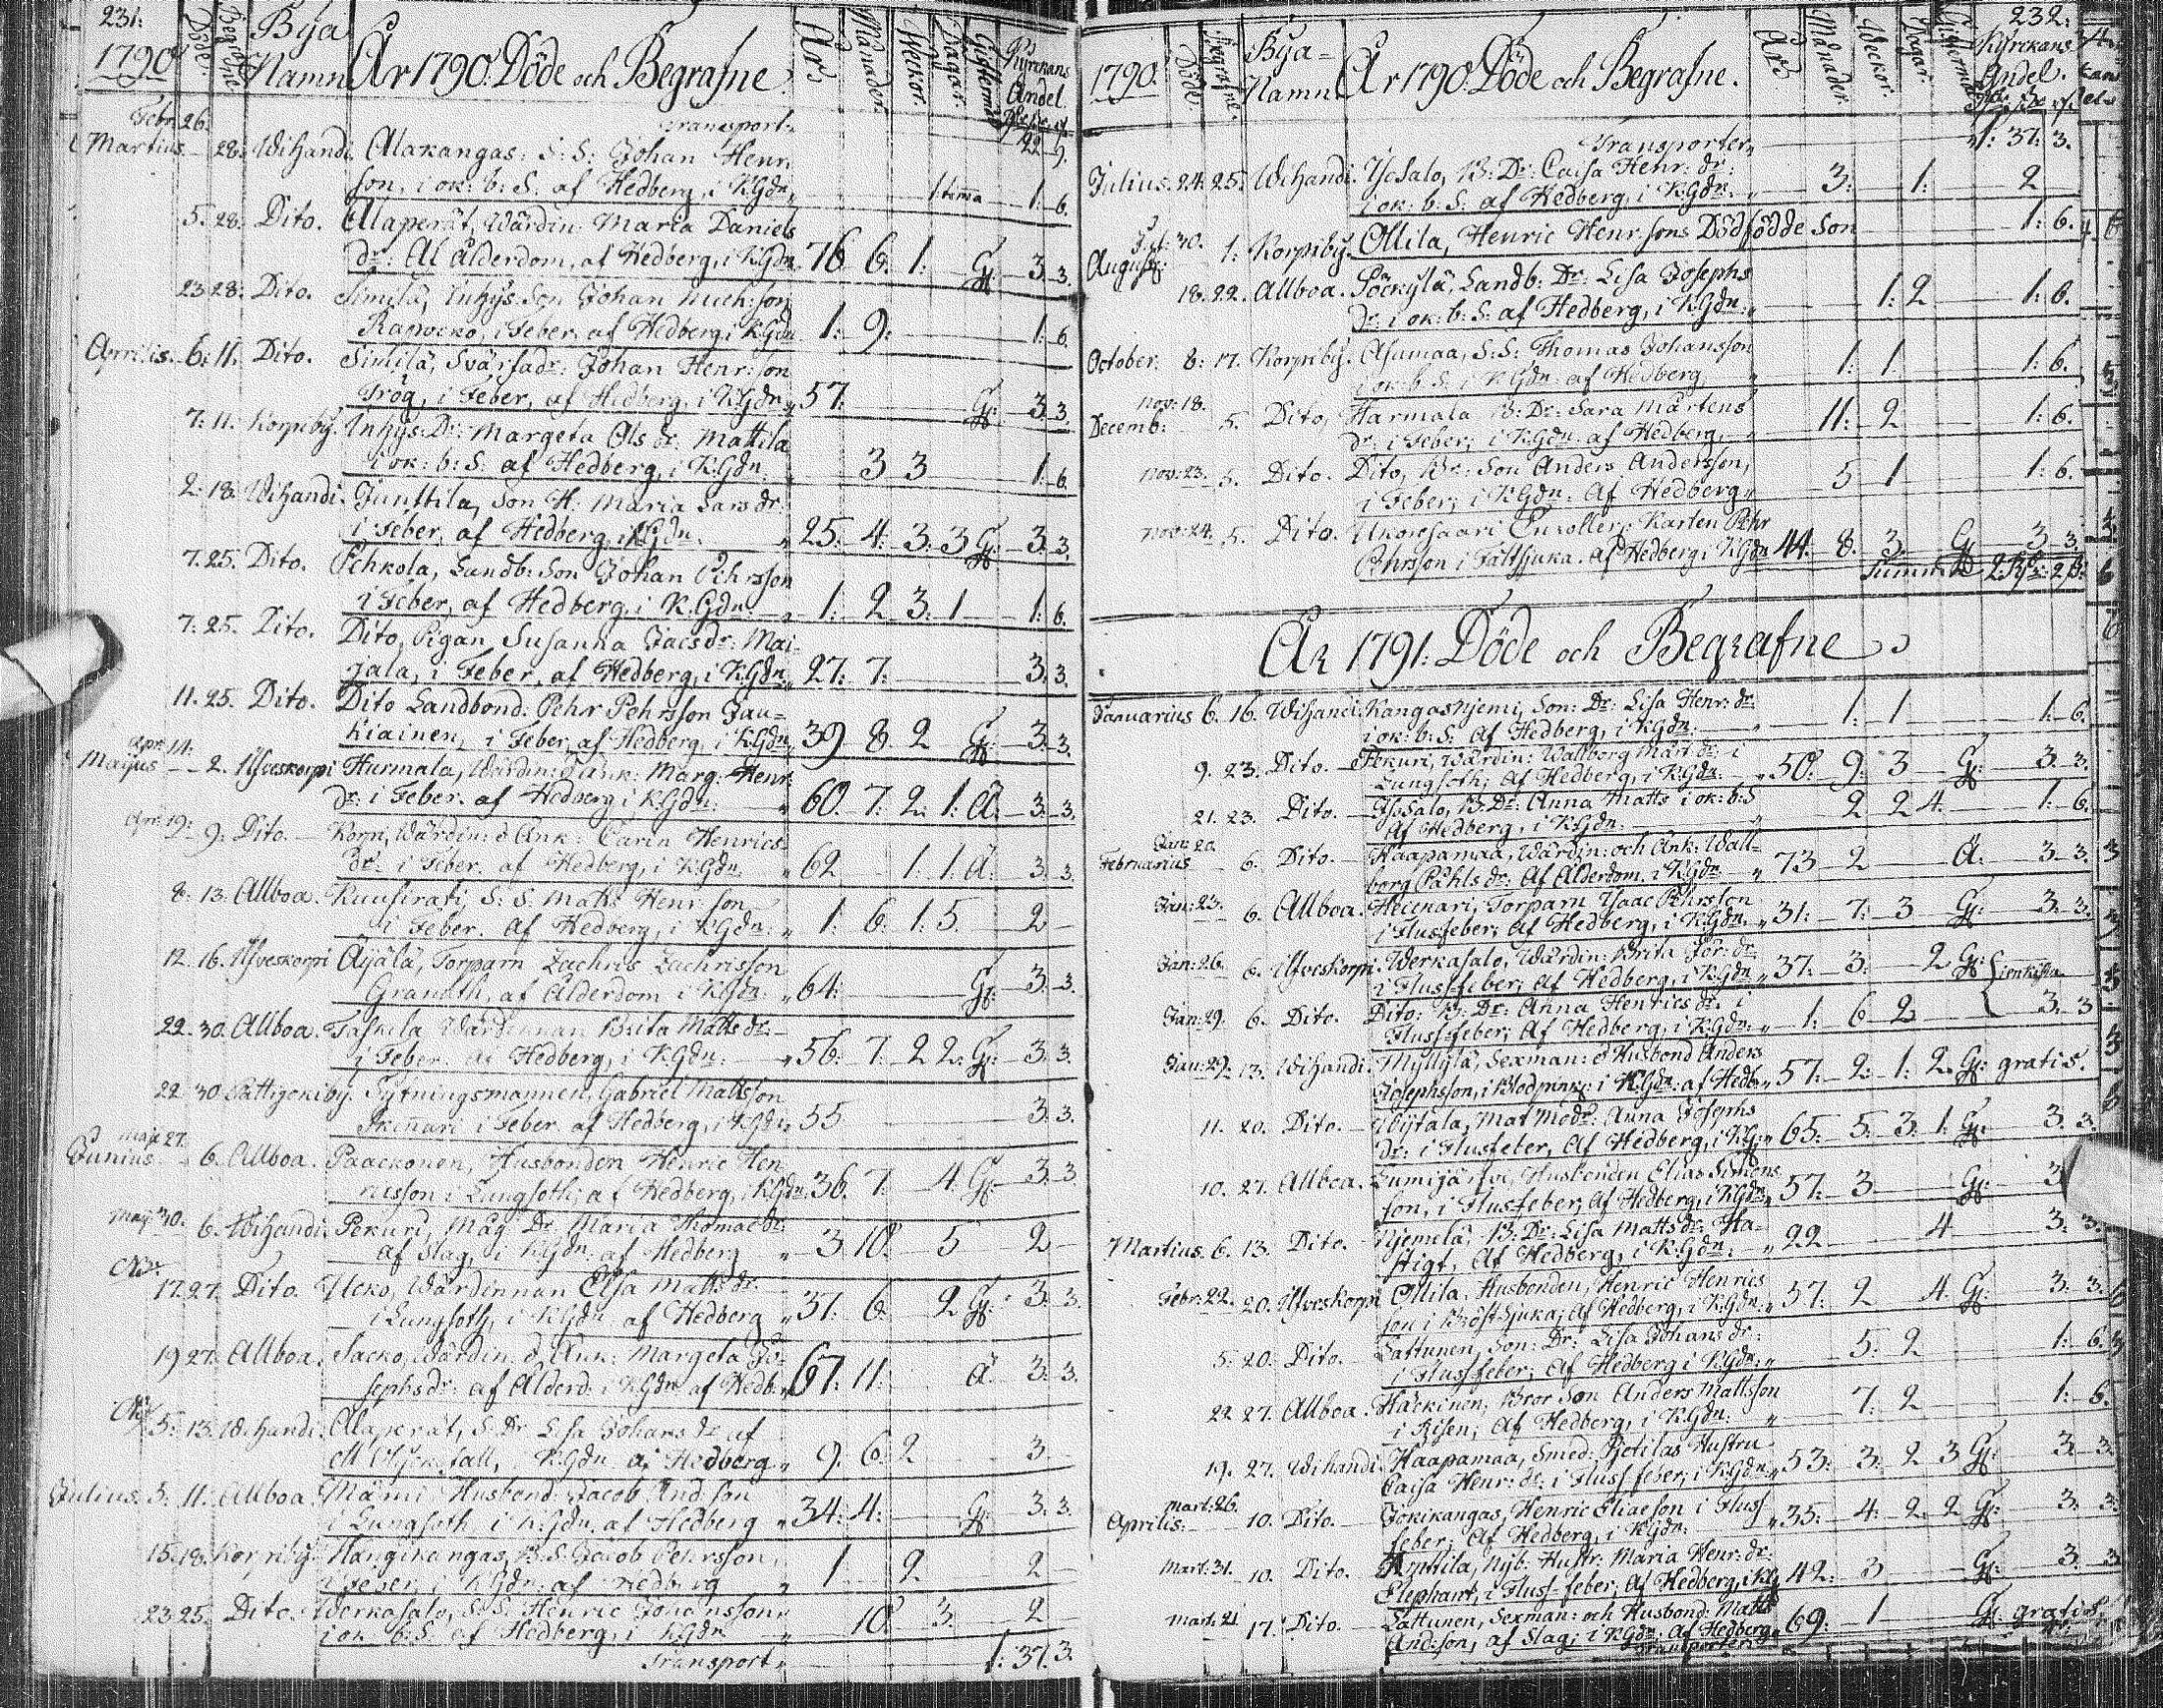 231:
1790
Döde
Begrafne
Bya Namn
År 1790. Döde och Begrafne.
År
Månader
Weckor
Dagar
Kyrekans Andel.
Transport
22 9.
Febr: 26.
Martius 28. Wihandi. Alakangas: S: S: Johan Henr:
son, i ok: b: S: af Hedberg, i KGdn. 1 tima 1: 6.
5. 28. Dito. Alaperät, Wärdin: Maria Daniels
dr: Af Ålderdom, af Hedberg, i KGdn. 76 6: 1: G: 3: 3.
23 28: Dito. Similä, Inhys: Son Johan Mich:son
i Feber, af Hedberg, i KGdn 1: 9: 1: 6
Aprilis. 6: 11. Dito. Similä, Svärfadr: Johan Henr:son
Trög, i Feber, af Hedberg, i KGdn. 57. G: 3. 3.
7: 11: Korpiby. Inhys: Dr: Margeta Ols dr: Mattila
i ok: b: S: af Hedberg, i KGdn. 3 3 1: 6.
2. 18. Wihandi. Junttila, Son H: Maria Lars dr:
i Feber, af Hedberg, i KGdn. 25. 4: 3: 3 G: 3: 3.
7. 25. Dito. Pehkola, Landb: Son Johan Pehrsson
i Feber, af Hedberg, i K.Gdn. 1: 2 3: 1 1: 6.
7: 25. Dito. Dito, Pigan Susanna Jacs dr: Mai-
jala, i Feber, af Hedberg, i KGdn. 27: 7: 3. 3.
11. 25. Dito. Dito Landbond. Pehr Pehrsson Jau-
kiainen, i Feber, af Hedberg, i KGdn. 39 8. 2 G: 3: 3.
Apr: 14:
Majus 2. Ilfveskorpi Hurmala, Wärdin: Enk: Marg. Henr:
dr: i Feber. af Hedberg i KGdn: 60. 7: 2: 1: Ä. 3. 3.
Apr: 19: 9: Dito. Korpi, Wärdin: Ank: Carin Henrics
dr: i Feber. af Hedberg, i KGdn 62 1: 1. Ä: 3: 3
8: 13: Allboa. S: S. Matts Henr: son
i Feber. af Hedberg, i KGdn: 1: 6: 1: 5. 2
12. 16. Ilfveskorpi Äijälä, Torparn Zachris Zachrisson
af Ålderdom i KGdn: 64: G: 3. 3.
22. 30. Allboa. Taskila Wärdinnan Brita Matts dr:
i Feber. af Hedberg, i KGdn: 56: 7: 2 2: G: 3: 3
22 30 Pattijokiby. Sytningsmannen Gabriel Mattsson
i Feber. af Hedberg, i KGdn: 55 3: 3.
Maji 27.
Junius. 6. Allboa. Paackonen, Husbonden Henric Hen
ricsson i Lungsoth; af Hedberg, i KGdn. 36. 7: 4. G: 3: 3
Maji 30. 6. Wihandi. Pekuri, Måg: Dr: Maria Thomæ dr:
af Slag, i KGdn: af Hedberg 3 10: 5 2
17. 27. Dito. Ucko, Wärdinnan Elsa Matts dr:
i Lungsoth, i KGdn: af Hedberg 37. 6: 2 G: 3: 3
19 27. Allboa. Sacko, Wärdin: Ank: Margeta Jo-
sephs dr: af Ålderd: i KGdn af Hedb. 67. 11: Ä 3: 3
5: 13. Wihandi. Alaperät, S: Dr Lisa Johans dr af
i KGdn: af Hedberg 9: 6: 2 3.
Julius. 3: 11. Allboa. Husbond. Jacob And:son
i Lungsoth i KGdn: af Hedberg 34: 4: G: 3: 3
15. 18. Korpiby. Hangikangas, B:S. Jacob Pehrsson
i Feber, i KGdn: af Hedberg 1 2 2
23. 25. Dito. Werkasalo, S: S: Henric Johansson
i ok: b: S: af Hedberg, i KGdn 10. 3. 2
Transport 1: 37. 3.
232:
1790.
Döde
Begrafne
Bya= Namn
År 1790. Döde och Begrafne.
År
Månader
Weckor.
Dagar.
Kyrekans Andel.
Transporter 1: 37: 3.
Julius. 24. 25. Wihandi. Ylisalo, B: Dr: Caisa Henr: dr:
i ok: b: S: af Hedberg, i K:Gdn. 3: 1: 2
Jul: 30.
August: 1: Korpiby. Ollila, Henric Henr:sons Dödfödde Son 1: 6.
18. 22. Allboa. Landb: Dr: Lisa Josephs
dr: i ok: b: S: af Hedberg, i KGdn. 1: 2 1: 6.
October. 8: 17. Korpiby. Asumaa, S:S: Thomas Johansson
i ok: b: S: i KGdn: af Hedberg 1: 1 1: 6.
Nov: 18.
Decemb: 5. Dito, Harmala B: Dr: Sara Mårtens
dr: i Feber; i KGdn. af Hedberg 11: 2 1: 6.
Nov: 23. 5. Dito. Dito, Br: Son Anders Andersson,
i Feber; i KGdn: Af Hedberg 5 1 1: 6.
Nov: 24. 5. Dito. Ukonsaari Karlen Pehr
Pehrsson i Fältsjuka. Af Hedberg, i KGdn 44. 8. 3. G 3: 3.
Summa
År 1791. Döde och Begrafne
Januarius 6. 16. Wihandi. Kangasnjemi, Son: Dr: Lisa Henr: dr:
i ok: b: S. Af Hedberg, i KGdn. 1: 1 1: 6.
9. 23. Dito. Pekuri, Wärdin: Wallborg Mårt: dr: i
Lungsoth; af Hedberg, i KGdn: 50. 9: 3 G: 3. 3.
21. 23. Dito. Ylisalo, B: Dr: Anna Matts i ok: b: S
Af Hedberg, i KGdn. 2 2 4. 1: 6.
Jan: 20.
Februarius 6. Dito. Haapamaa, Wärdin: och Enk: Wall-
borg Påhls dr: Af Ålderdom. i KGdn. 73 2 Ä: 3. 3.
Jan: 23. 6. Allboa. Torparn Isaac Pehrsson
i Flussfeber; Af Hedberg, i KGdn. 31: 7: 3 G: 3: 3.
Jan: 26. 6. Ilfveskorpi. Werkasalo, Wärdin: Brita Jör: dr:
i Flussfeber; Af Hedberg, i KGdn 37: 3: 2 G: i en kista
Jan: 29. 6. Dito. Dito: B: Dr: Anna Henrics dr: i
Flussfeber; Af Hedberg, i KGdn: 1: 6 2 3: 3
Jan: 29: 13. Wihandi. Myllylä, Sexman: & Husbond Anders
Josephsson, i KGdn: af Hedb. 57. 2: 1: 2. G: gratis.
11. 20. Dito. Mat Modr: Anna Josephs
dr: i Flusfeber, Af Hedberg, i KG: 65. 5: 3: 1: G: 3. 3.
10. 27. Allboa. Lumijärfve, Husbonden Elias Simons
son, i Flusfeber, Af Hedberg, i KGdn. 57: 3. G: 3
Martius. 6. 13. Dito. Njemelä, B: Dr: Lisa Matts dr: Ha-
stigt, Af Hedberg, i K:Gdn: 22 4 3: 3.
Febr: 22. 20. Ilfveskorpi Ollila, Husbonden, Henric Henrics
son i Bröstsjuka; Af Hedberg, i KGdn: 57: 2 4. G: 3. 3.
5: 20: Dito. Lattunen, Son: Dr: Lisa Johans dr:
i Flussfeber; Af Hedberg i KGdn: 5: 2 1: 6.
22 27. Allboa. Häckinen, Bror Son Anders Mattsson
i Risen; Af Hedberg, i KGdn: 7: 2 1: 6.
19. 27. Wihandi. Haapamaa, Smed: Pietilas Hustru
Caisa Henr: dr: i Flussfeber; i KGdn. 53: 3: 2 3 G: 3: 3.
Mart: 26.
Aprilis: 10. Dito. Jokikangas, Henric Eliasson i Fluss
feber; Af Hedberg, i KGdn: 35: 4: 2: 2 G: 3: 3.
Mart: 31. 10. Dito. Nyb: Hustr: Maria Henr: dr:
Elephant, i Flus-feber; Af Hedberg, i KG 42: 3 G: 3: 3
Mart: 21 17. Dito. Lattunen, Sexman: och Husbond: Matts
And:son, af Slag; i KGdn: Af Hedberg 69: 1 G: gratis.
Transporter